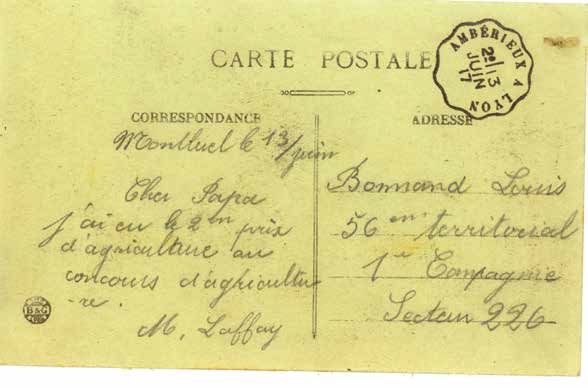 CARTE POSTALE
AMBÉRIEUX A LYON
2º/13
JUIN
17
CORRESPONDANCE
ADRESSE
Montluel le 13/juin
Cher Papa
j'ai eu le 2em prix
d'agriculture au
concours d'aghricultu
-re.
M. Laffay
Bonnand Louis
56em territorial
1re Compagnie
Secteur 226
B&G